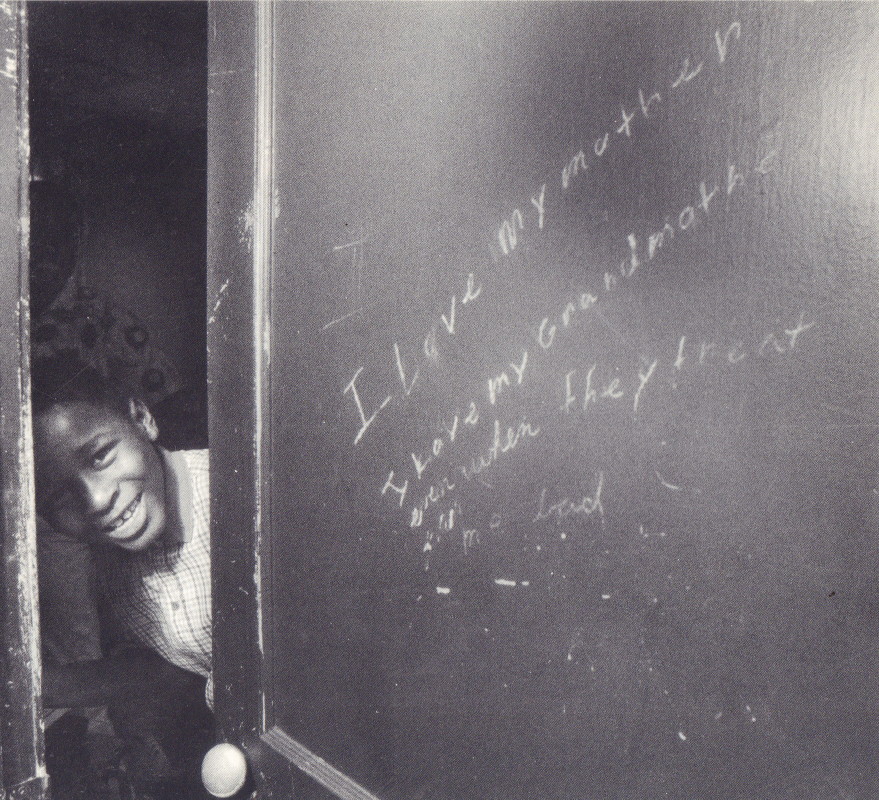 I Love My mother
I Love my Grandmothe
even when they treat
me bad